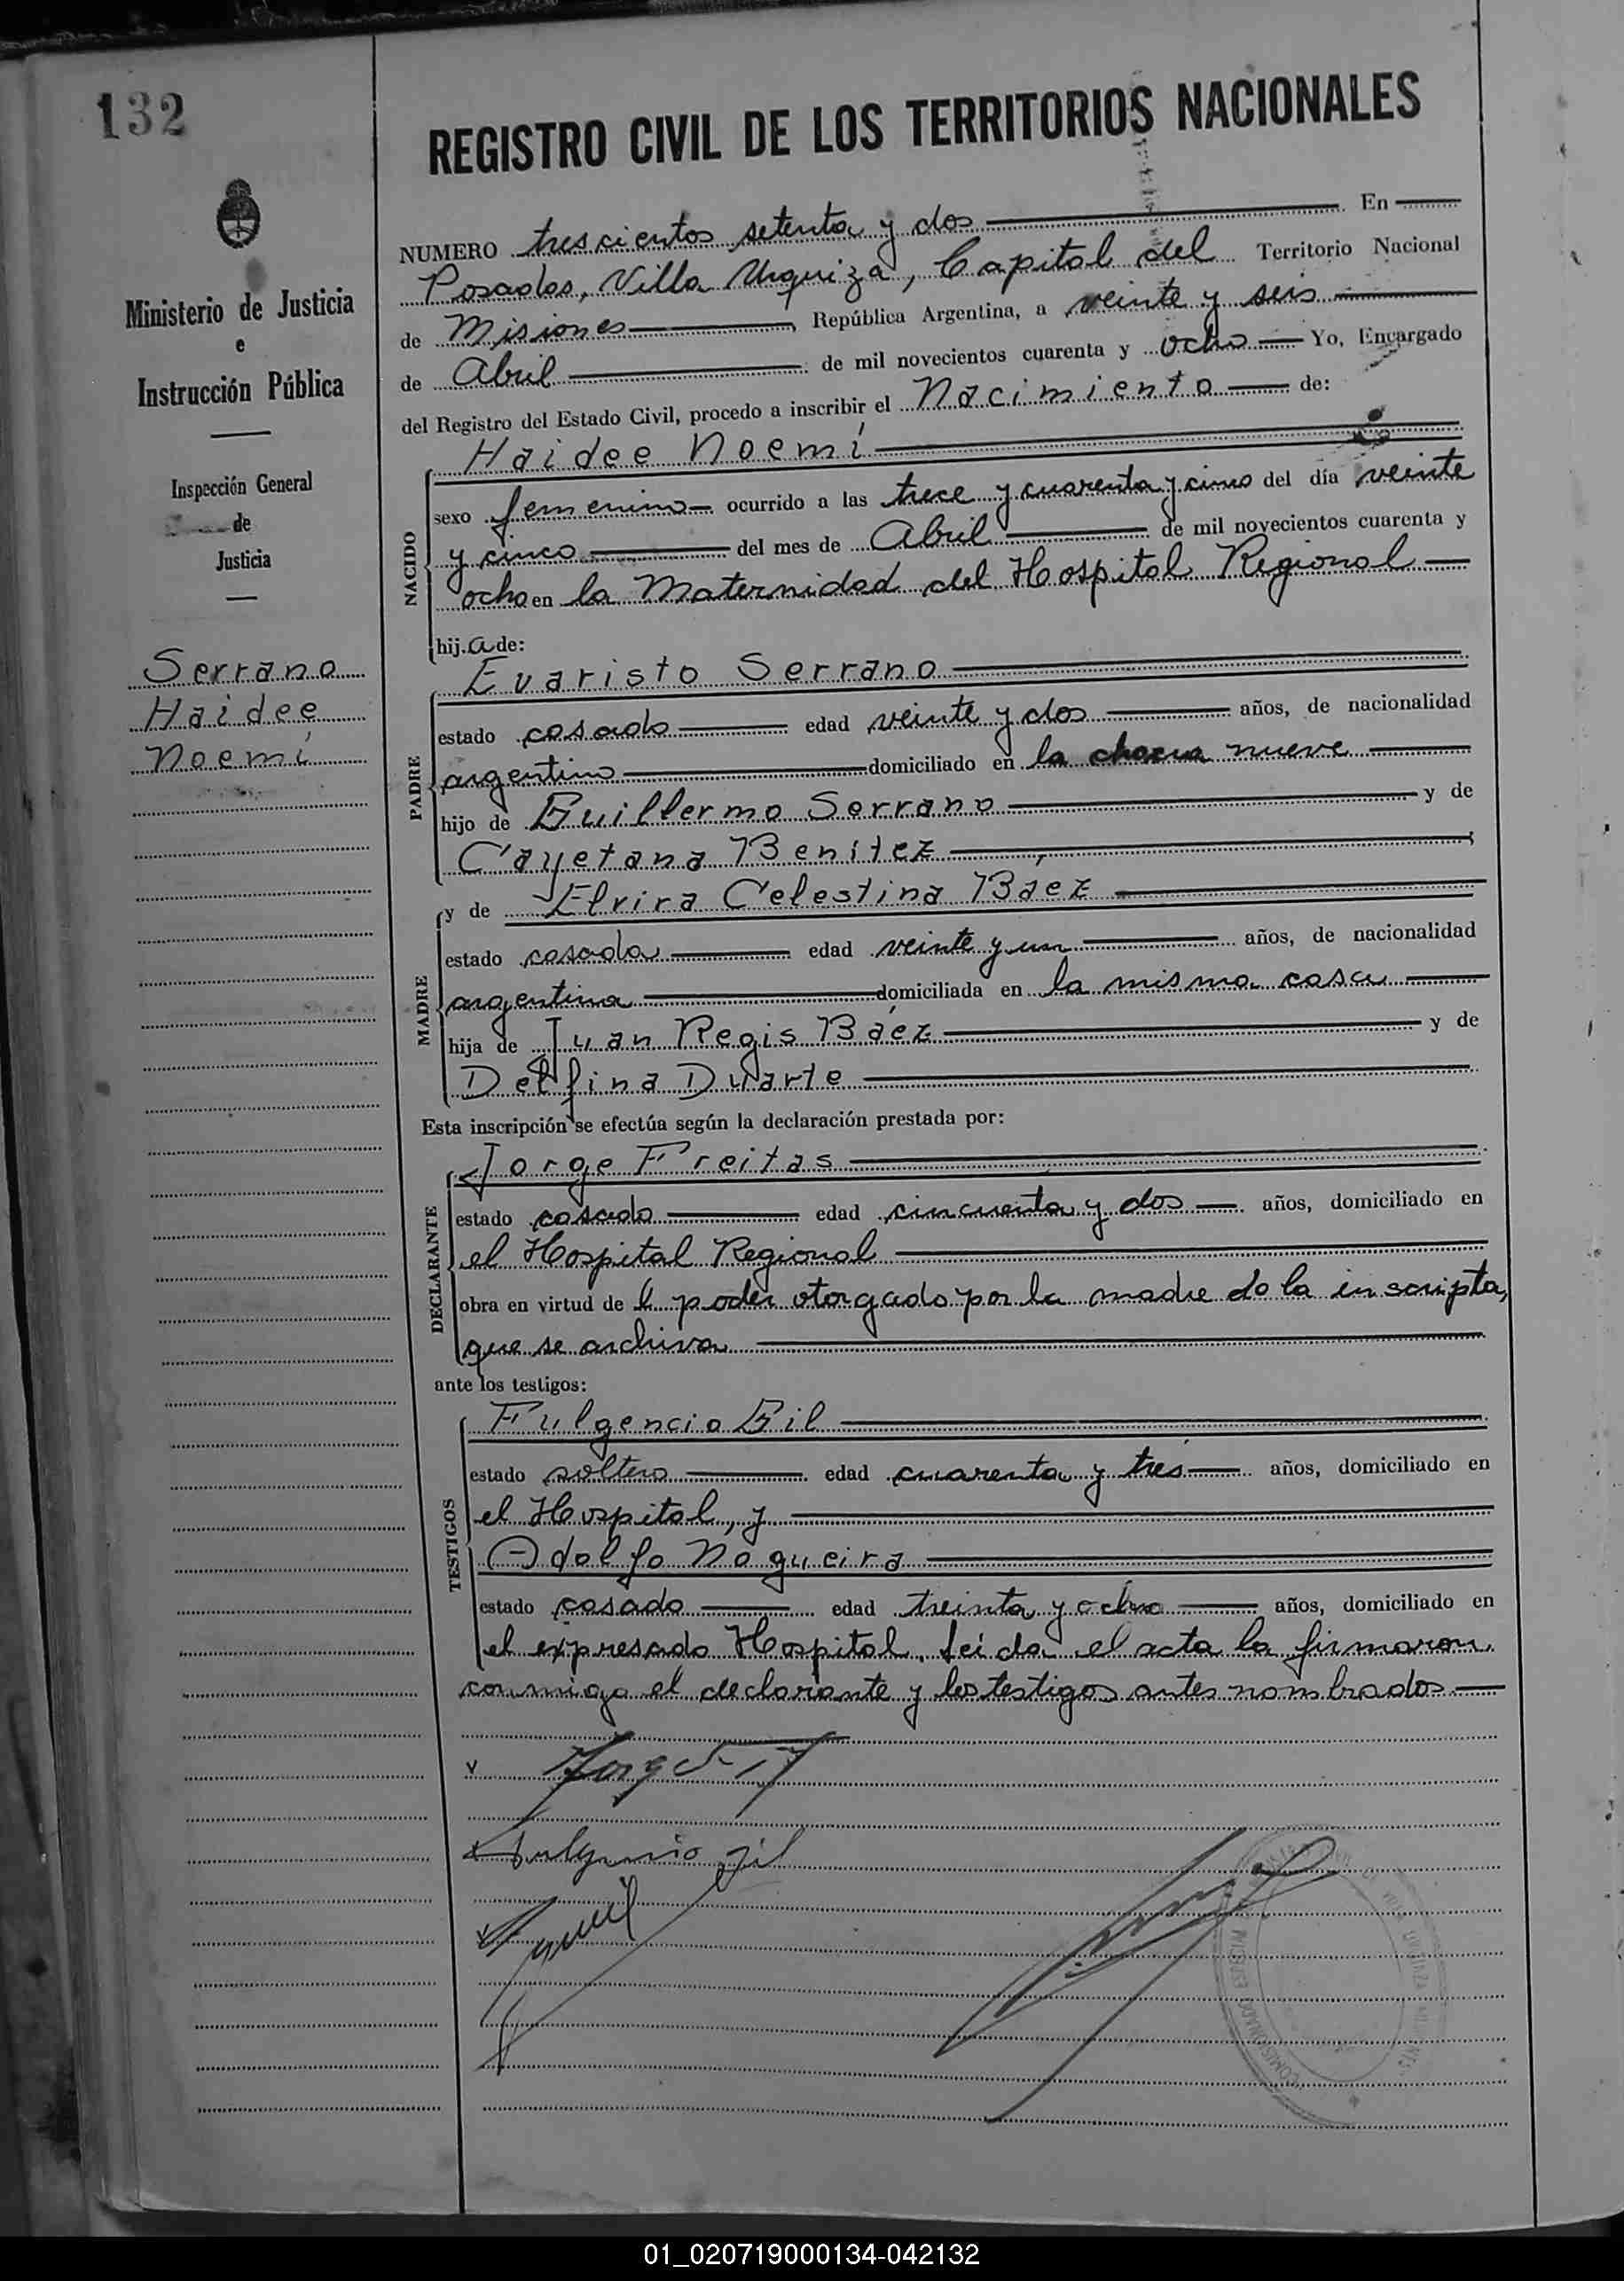 132
REGISTRO CIVIL DE LOS TERRITORIOS NACIONALES
Ministerio de Justicia
e
Instrucción Pública
Inspección General
de
Justicia
Serrano
Haidee
Noemí
NUMERO trescientos setenta y dos En
Posadas, Villa Urquiza, Capital del Territorio Nacional
de Misiones, República Argentina, a veinte y seis
de Abril de mil novecientos cuarenta y ocho Yo, Encargado
del Registro del Estado Civil, procedo a inscribir el Nacimiento de:
NACIDO
Haidee Noemí
sexo femenino ocurrido a las trece y cuarenta y cinco del día veinte
y cinco del mes de Abril de mil novecientos cuarenta y
ocho en la Maternidad del Hospital Regional
hija de:
PADRE
Evaristo Serrano
estado casado edad veinte y dos años, de nacionalidad
argentino domiciliado en la chacra nueve
hijo de Guillermo Serrano y de
Cayetana Benítez
MADRE
y de Elvira Celestina Báez
estado casada edad veinte y un años, de nacionalidad
argentina domiciliada en la misma casa
hija de Juan Regis Báez y de
Delfina Duarte
Esta inscripción se efectúa según la declaración prestada por:
DECLARANTE
Jorge Freitas
estado casado edad cincuenta y dos años, domiciliado en
el Hospital Regional
obra en virtud de l poder otorgado por la madre de la inscripta,
que se archiva
ante los testigos:
TESTIGOS
Fulgencio Gil
estado soltero edad cuarenta y tres años, domiciliado en
el Hospital, y
Adolfo Nogueira
estado casado edad treinta y ocho años, domiciliado en
el expresado Hospital. Leída el acta la firmaron
conmigo el declarante y los testigos antes nombrados
Fulgencio Gil
01_020719000134-042132